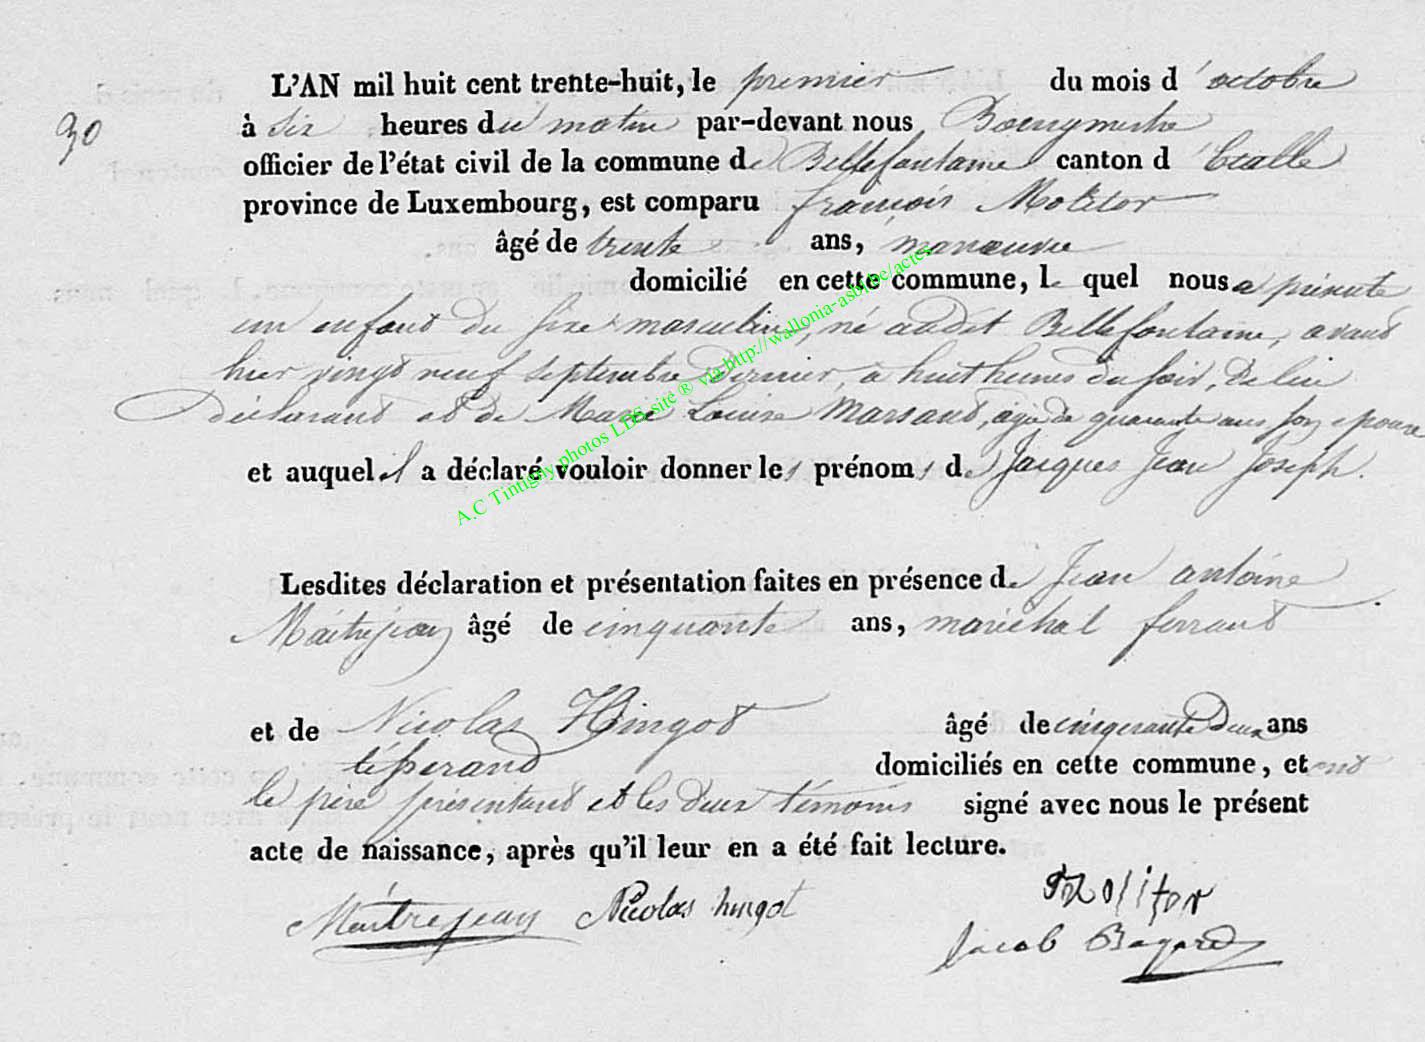 L'AN mil huit cent trente-huit, le premier du mois d'octobre
30
à six heures du matin par-devant nous Bourgmestre
officier de l'état civil de la commune de Bellefontaine canton d'Etalle
province de Luxembourg, est comparu françois Molitor
âgé de trente ans, manoeuvre
domicilié en cette commune, le quel nous a présenté
un enfant du sexe masculin, né audit Bellefontaine, avant
hier vingt neuf septembre dernier, a huit heures du soir, de lui
déclarant et de Marie Louise Marsaud, agée de quarante ans son epouse
et auquel il a déclaré vouloir donner les prénoms de Jacques Jean Joseph.
Lesdites déclaration et présentation faites en présence de Jean antoine
Maitrejean âgé de cinquante ans, maréchal ferrant
et de Nicolas Hingot âgé de cinquante deux ans
tisserand domiciliés en cette commune, et ont
le père présentant et les deux témoins signé avec nous le présent
acte de naissance, après qu'il leur en a été fait lecture.
Maitrejean Nicolas hingot Molitor
Jacob Bagard
A.C Tintigny photos LDS site ® via http://wallonia-asbl.be/actes